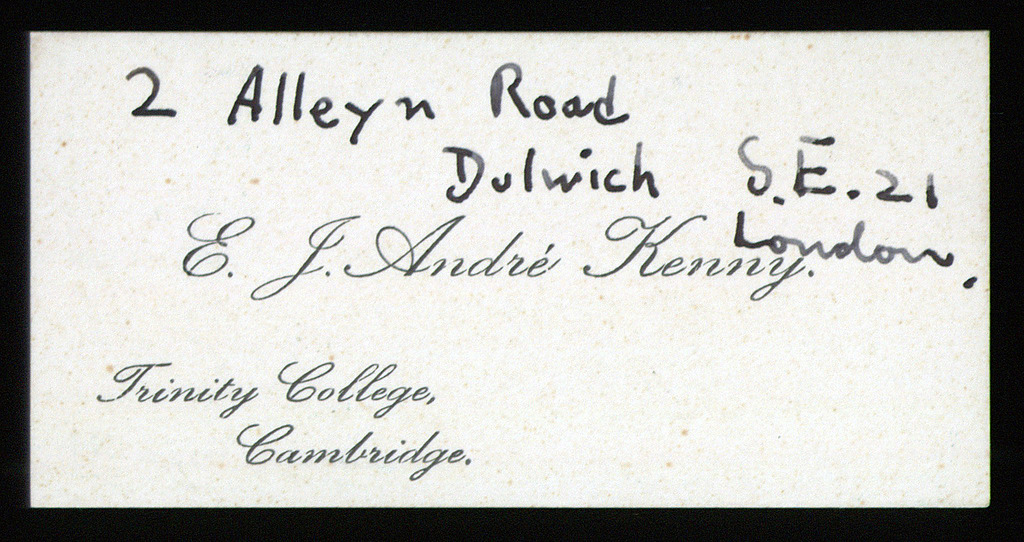 2 Alleyn Road
Dulwich S.E. 21
London.
E. J. André Kenny.
Trinity College,
Cambridge.